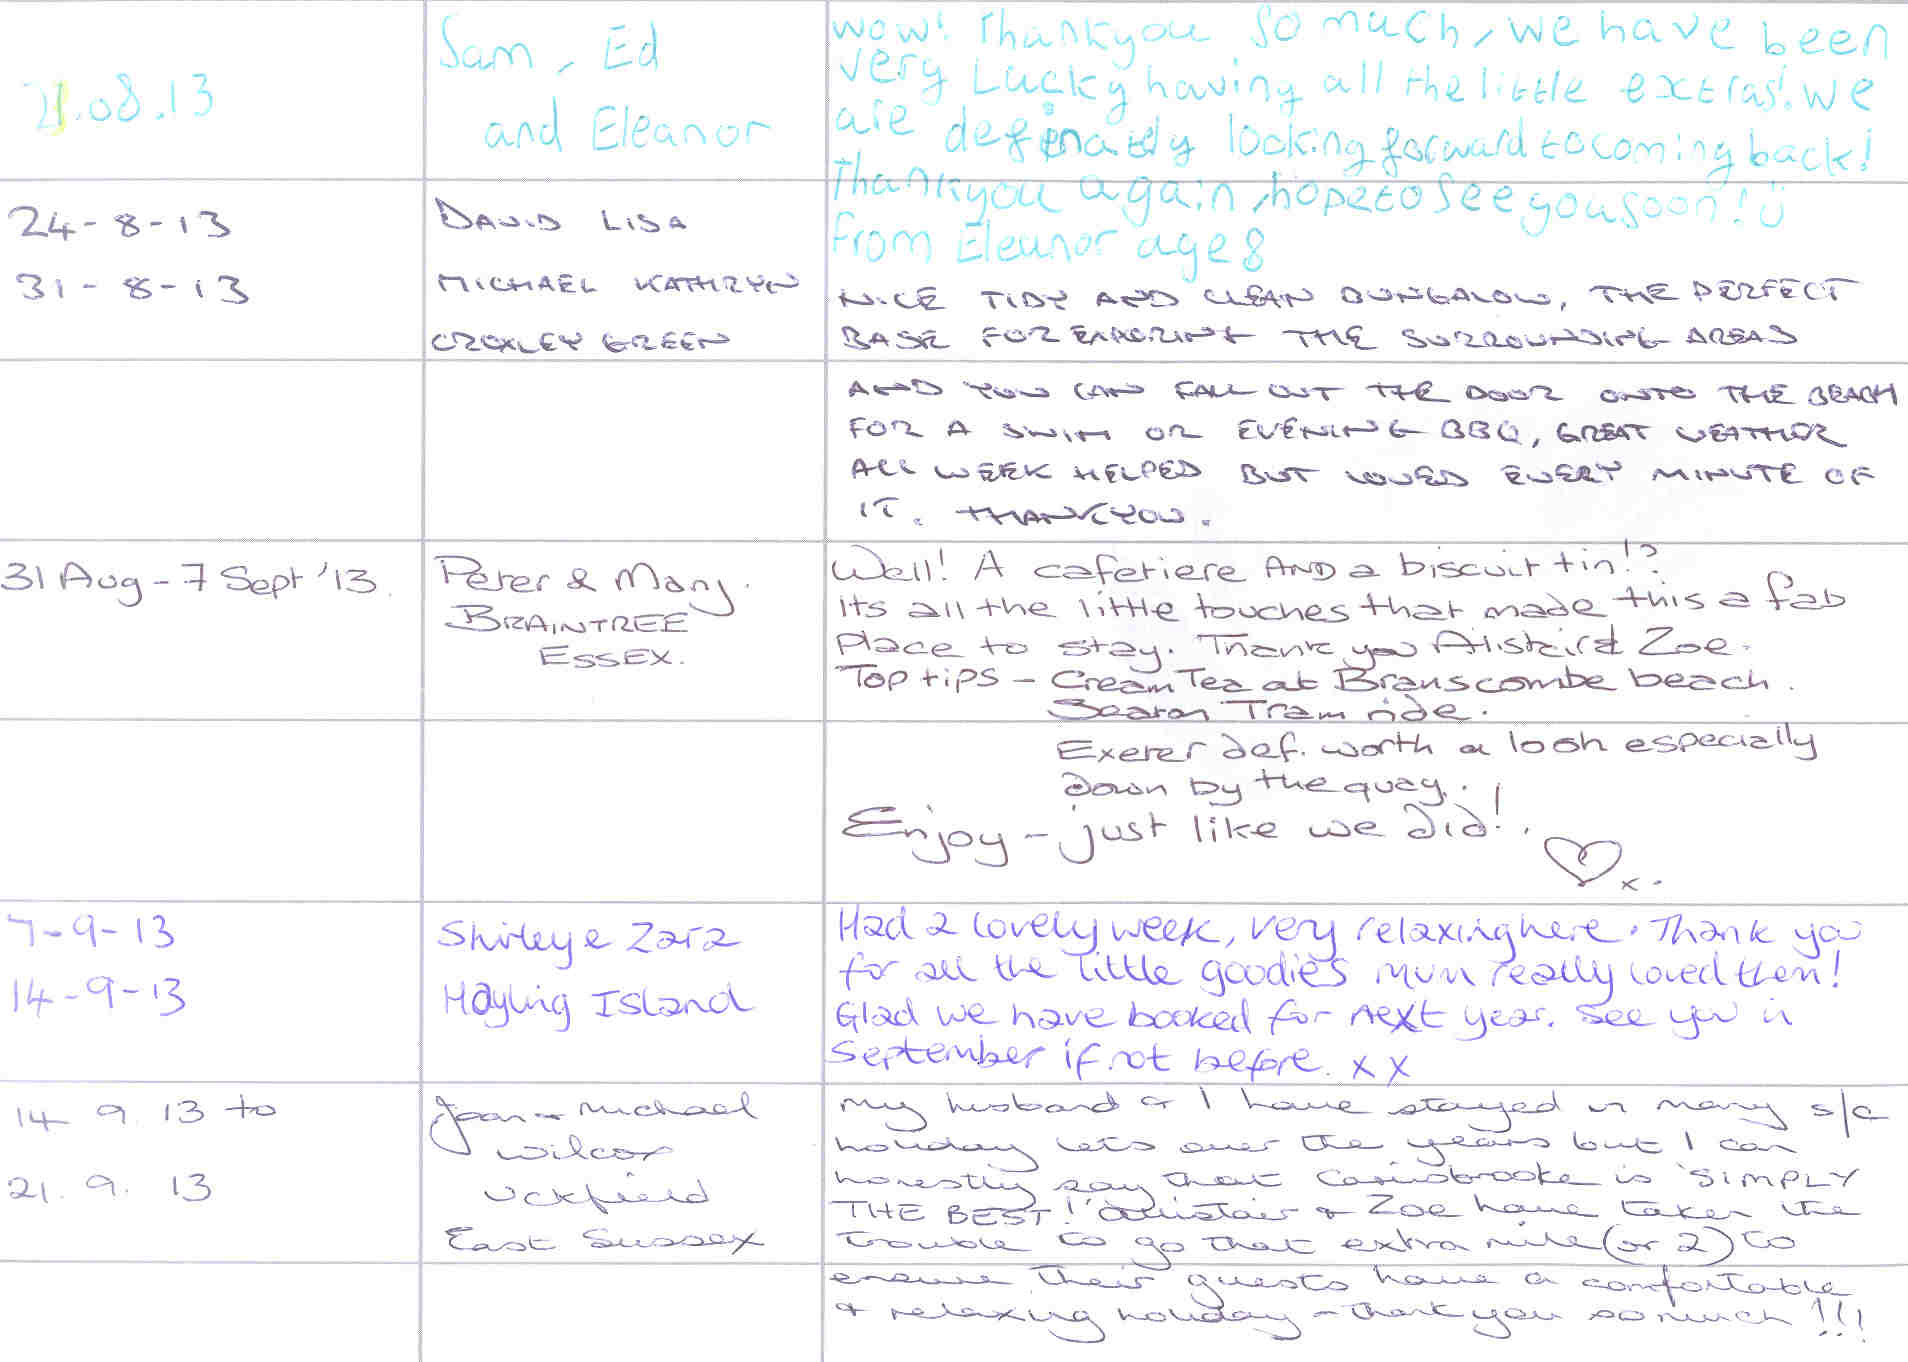 21.08.13
Sam, Ed
and Eleanor
wow! Thankyou so much, we have been
very Lucky having all the little extras! we
are definatly looking forward to coming back!
Thankyou again, hope to see you soon! :)
From Eleanor age 8
24-8-13
31-8-13
DAVID LISA
MICHAEL KATHRYN
CROXLEY GREEN
NICE TIDY AND CLEAN BUNGALOW, THE PERFECT
BASE FOR EXPLORING THE SURROUNDING AREAS
AND YOU CAN FALL OUT THE DOOR ONTO THE BEACH
FOR A SWIM OR EVENING BBQ, GREAT WEATHER
ALL WEEK HELPED BUT LOVED EVERY MINUTE OF
IT. THANKYOU.
31 Aug - 7 Sept '13.
Peter & Mary.
BRAINTREE
ESSEX.
Well! A cafetiere AND a biscuit tin!?
Its all the little touches that made this a fab
Place to stay. Thank you Alistair & Zoe.
Top tips - Cream Tea at Branscombe beach.
Seaton Tram ride.
Exeter def. worth a look especially
down by the quay.
Enjoy - just like we did!
x.
7-9-13
14-9-13
Shirley & Zara
Hayling Island
Had a lovely week, very relaxing here. Thank you
for all the little goodies mum really loved them!
Glad we have booked for next year. See you in
September if not before. x x
14 9. 13 to
21. 9. 13
Joan & Michael
Wilcox
Uckfield
East Sussex
My husband & I have stayed in many s/c
holiday lets over the years but I can
honestly say that Carisbrooke is 'SIMPLY
THE BEST!' Alistair & Zoe have taken the
trouble to go that extra mile (or 2) to
ensure their guests have a comfortable
& relaxing holiday - thank you so much!!!